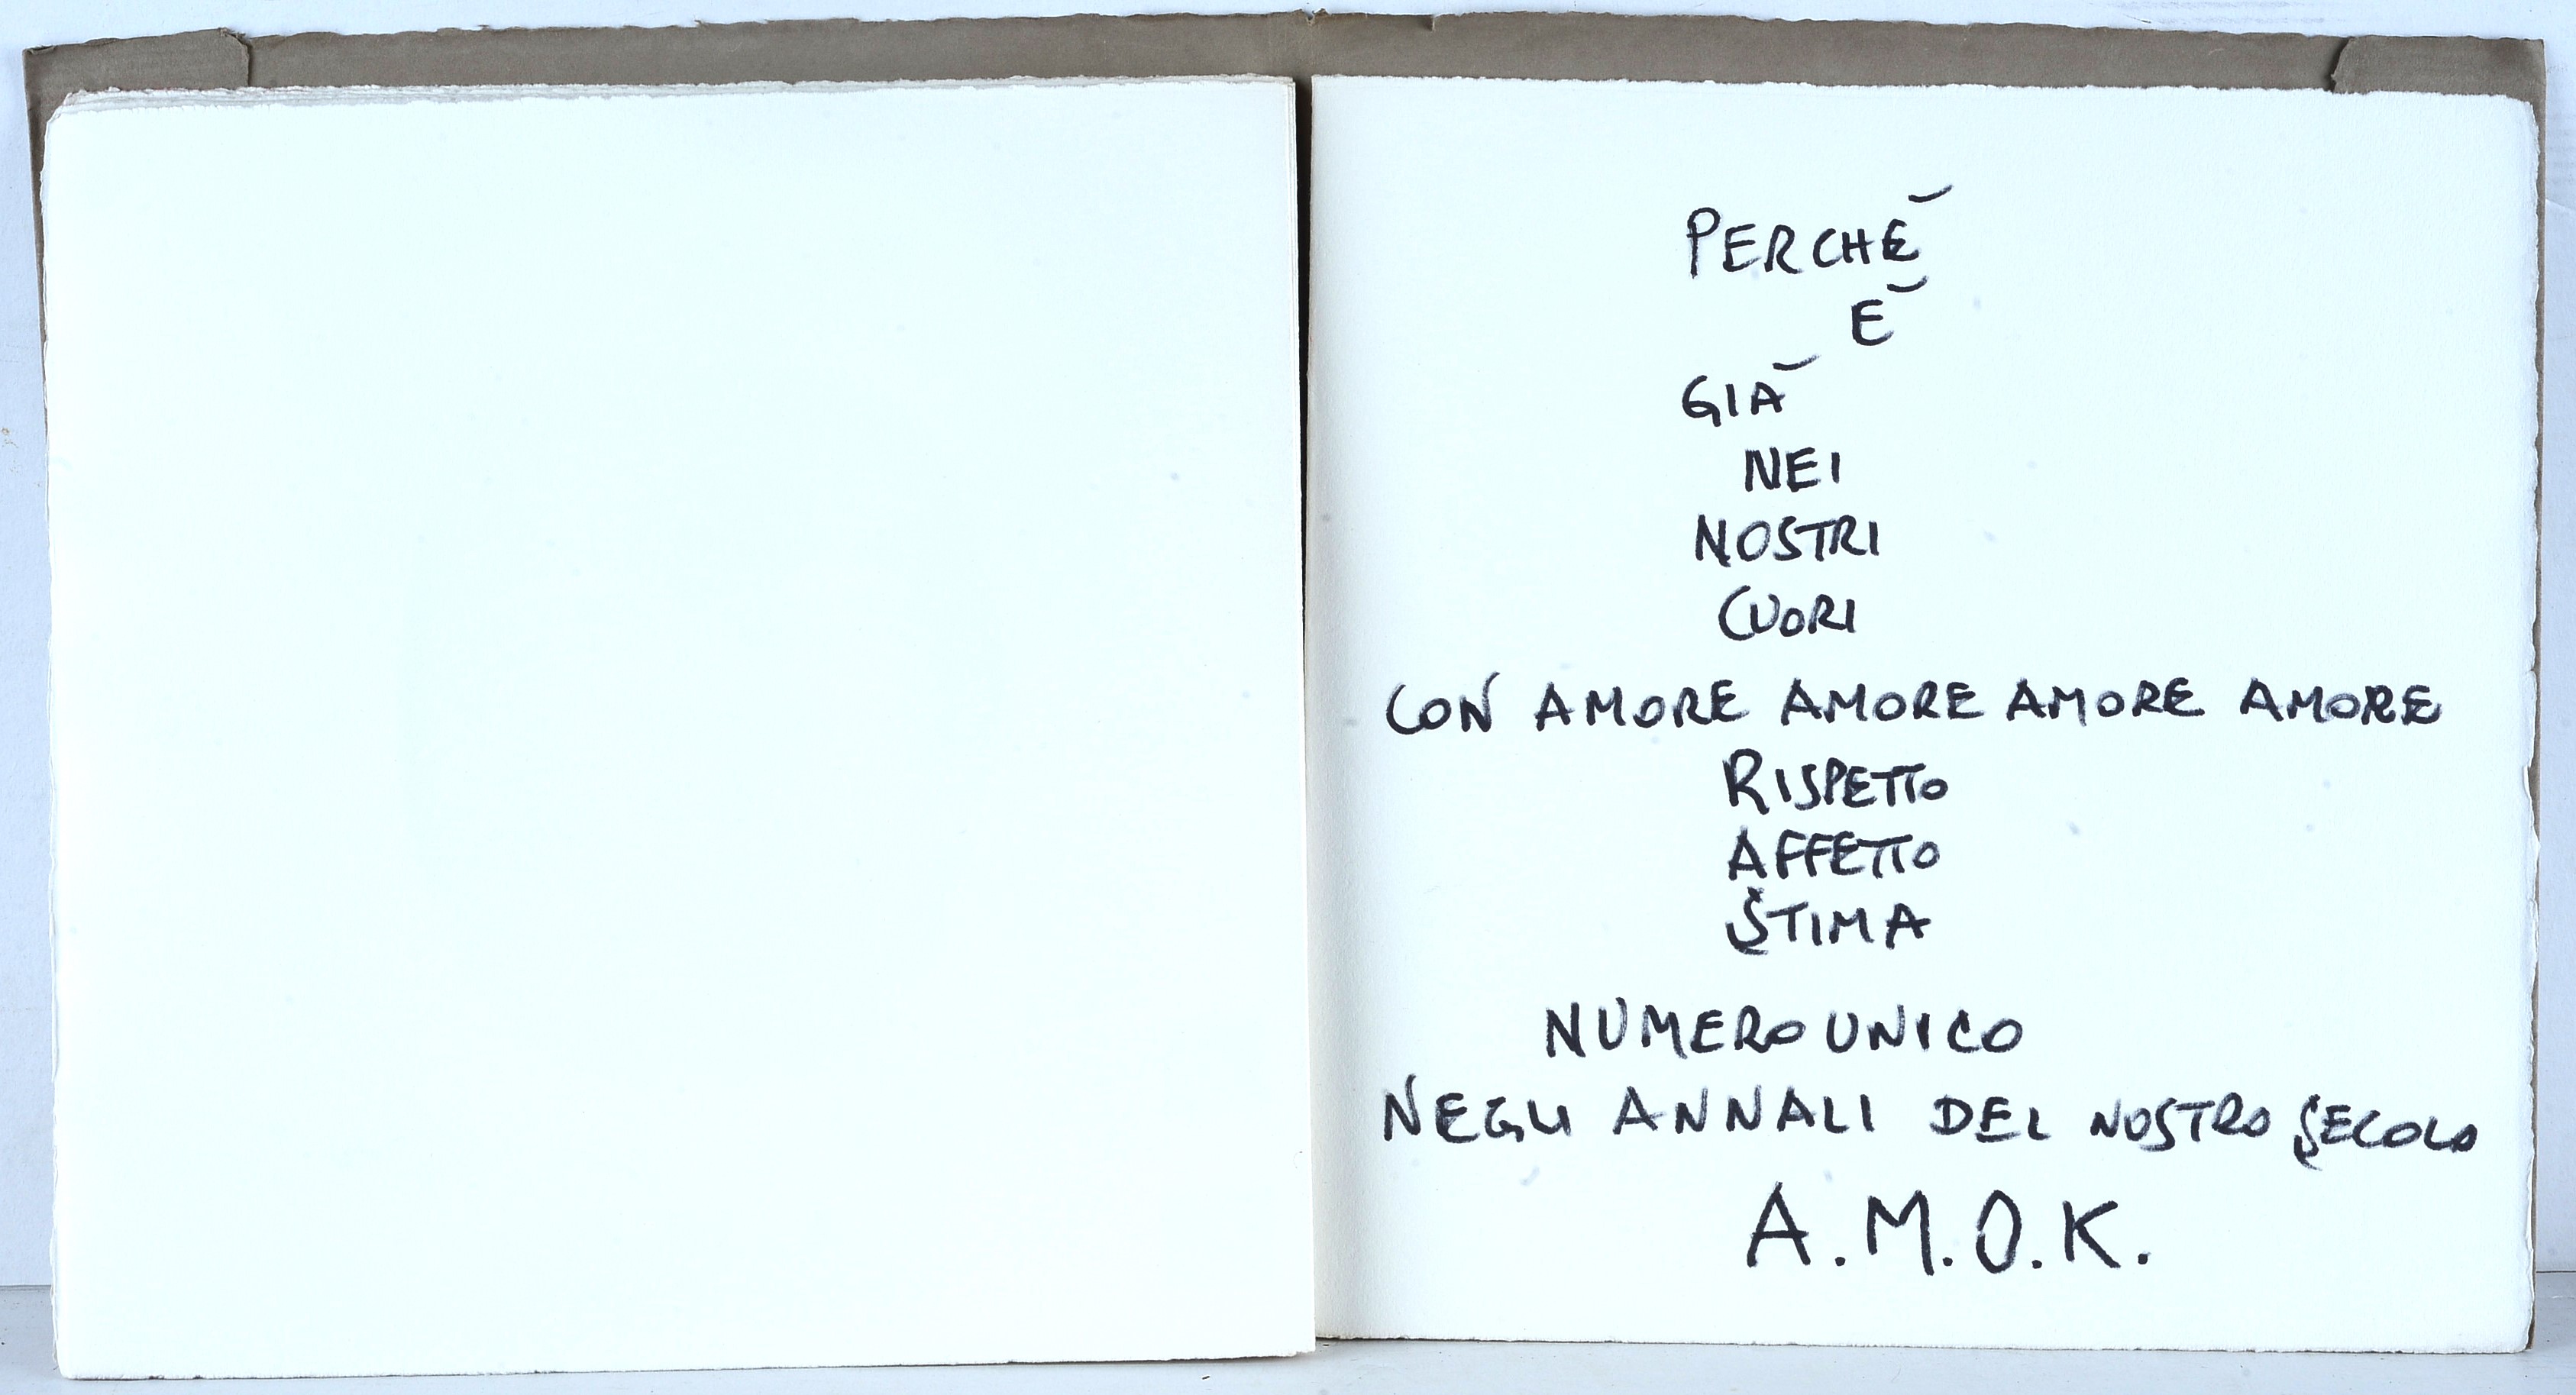 PERCHÉ
É
GIÁ
NEI
NOSTRI
CUORI
CON AMORE AMORE AMORE AMORE
RISPETTO
AFFETTO
STIMA
NUMERO UNICO
NEGLI ANNALI DEL NOSTRO SECOLO
A.M.O.K.